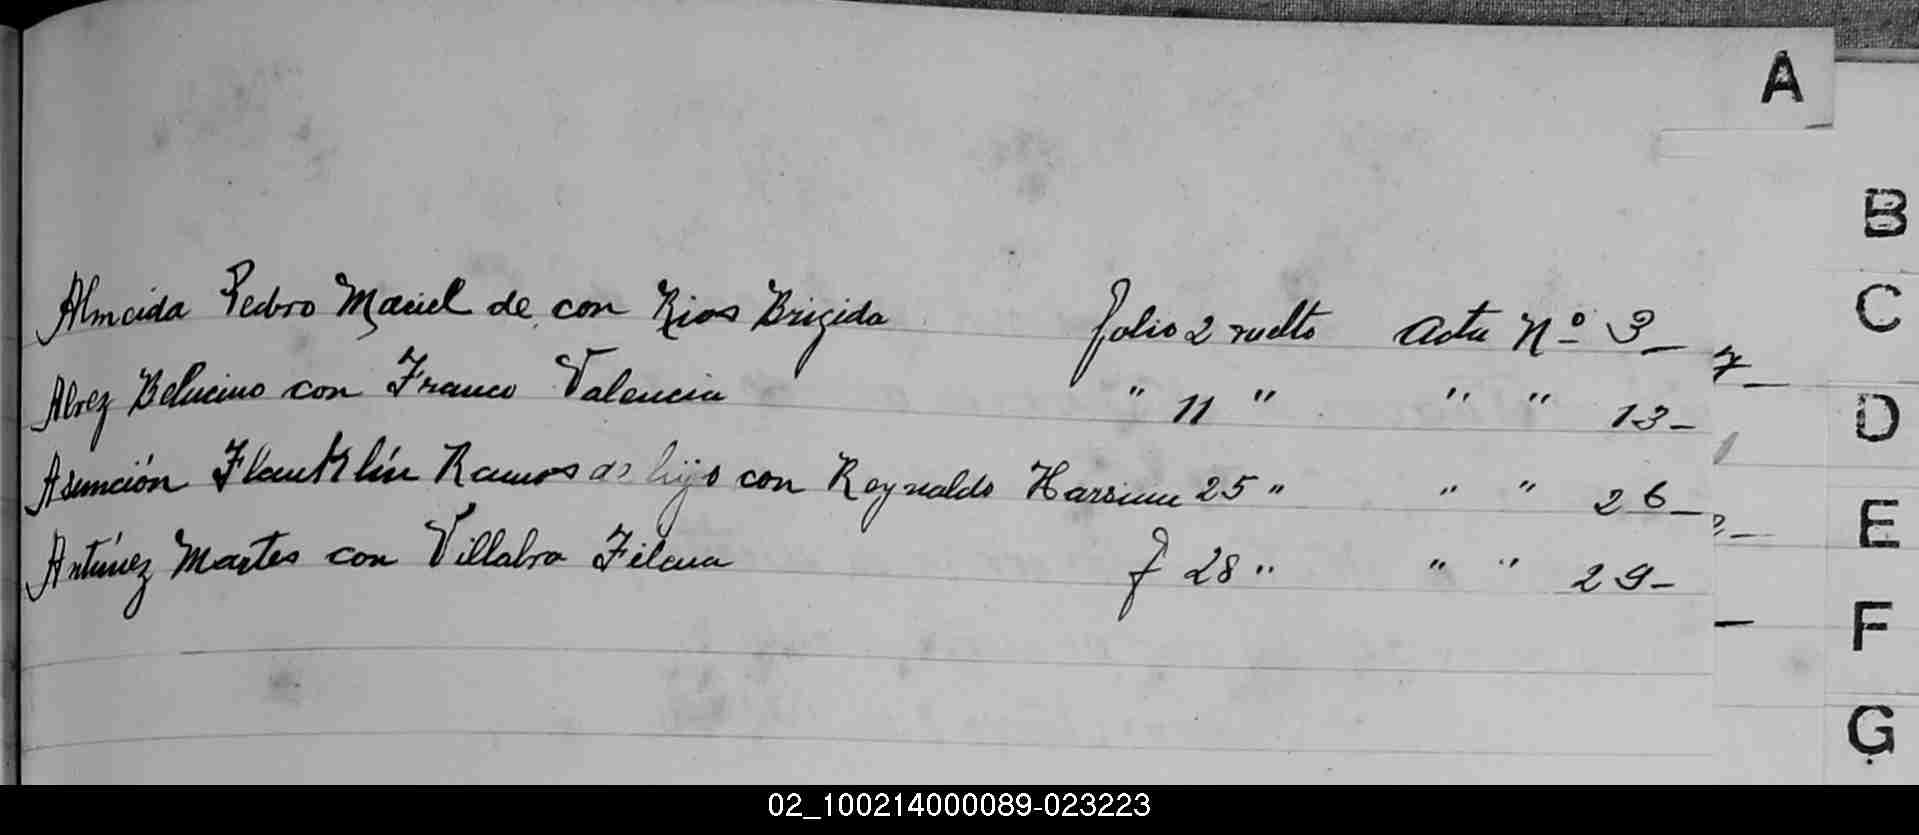 A
B
C
D
E
F
G
Almeida Pedro Maciel de con Rios Brigida folio 2 vuelto Acta Nº 3_
Alvez Belucino con Franco Valencia " 11 " " " 13_
Asunción Flanklin Ramos de hijo con Reynaldo 25 " " " 26_
Antúnez Mastes con Villalva Filena f 28 " " " 29_
02_100214000089-023223